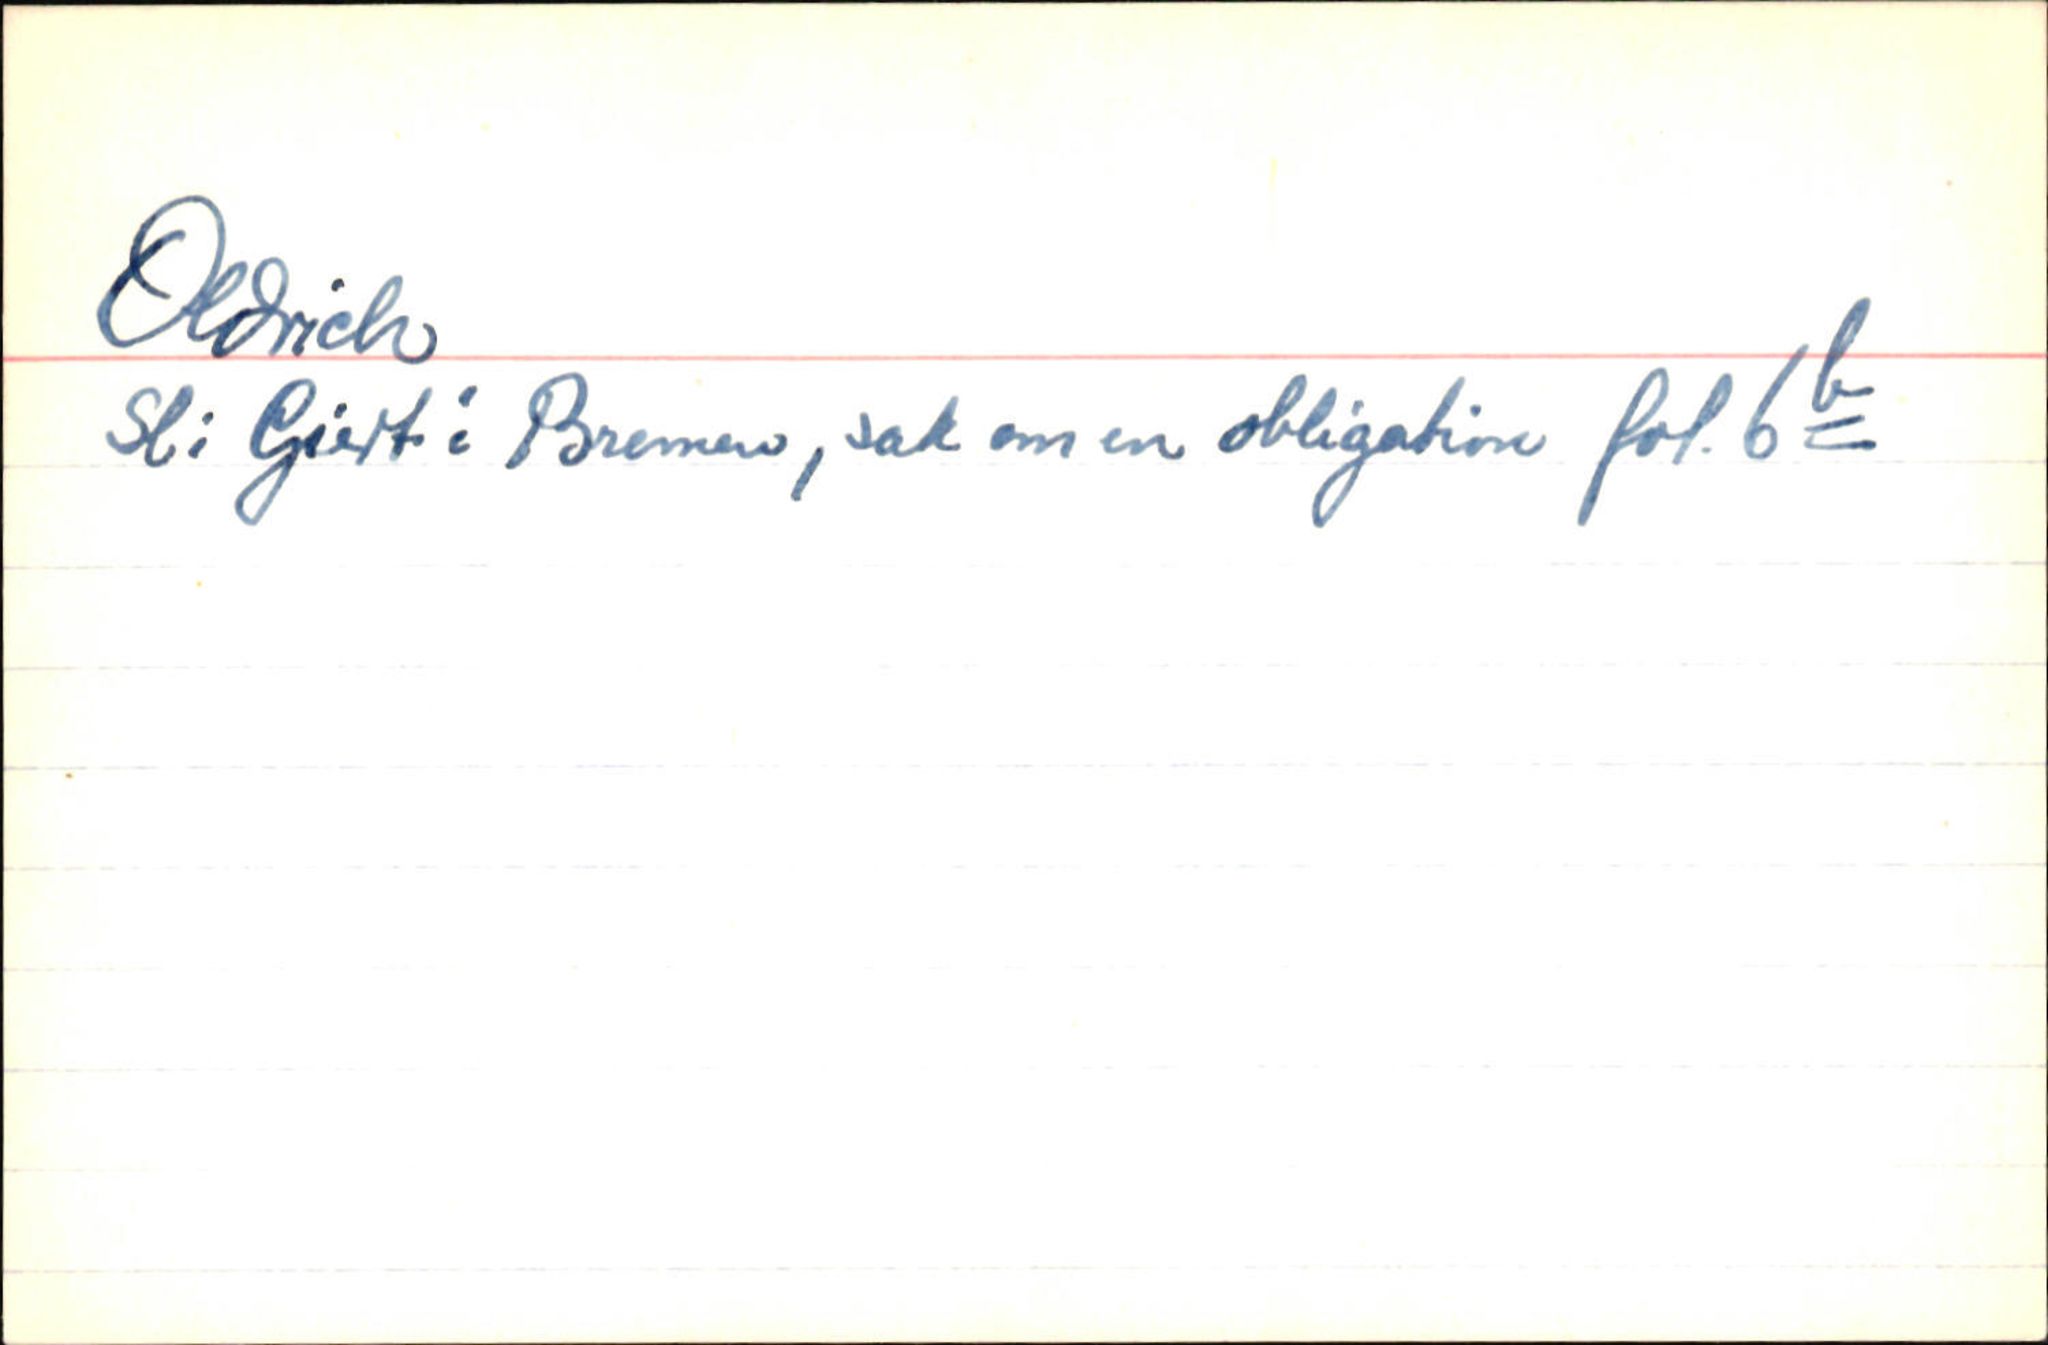 Oldrich
Sl: Giert i Bremen, sak om en obligation fol. 6 b